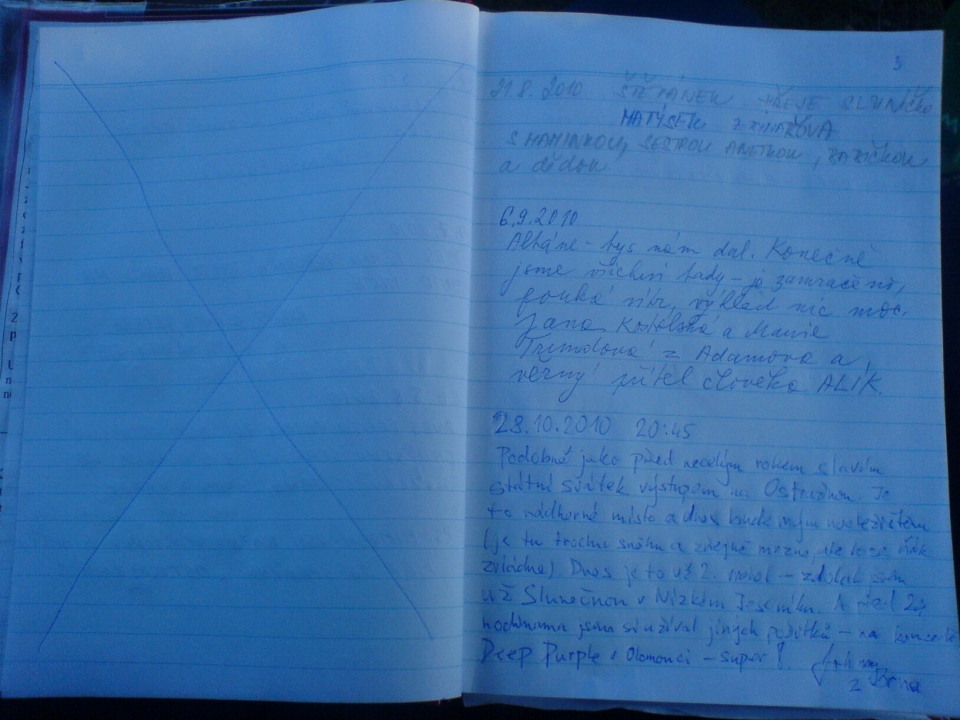 3
21.8.2010 ŠTĚPÁNEK HŘEJE SLUNÍČKO
MATÝSEK Z RÝMAŘOVA
S MAMINKOU, SESTROU ANETKOU, BABIČKOU
a dědou
6.9.2010
Altáne - bys nám dal. Konečně
jsme všichni tady - je zamračeno,
fouká vítr, výhled nic moc.
Jana a Marie
z Adamova a
věrný přítel člověka ALÍK.
28.10.2010 20:45
Podobně jako před necelým rokem slavím
státní svátek výstupem na Ostružnou. Je
to nádherné místo a dnes bude mým nocležištěm
(je tu trochu sněhu a zřejmě mrzne, ale to se
zvládne). Dnes je to už 2. - zdolal jsem
už Slunečnou v Nízkém Jeseníku. A před 24
hodinama jsem si užíval jiných požitků - na koncertě
Deep Purple v Olomouci - super!
z Brna